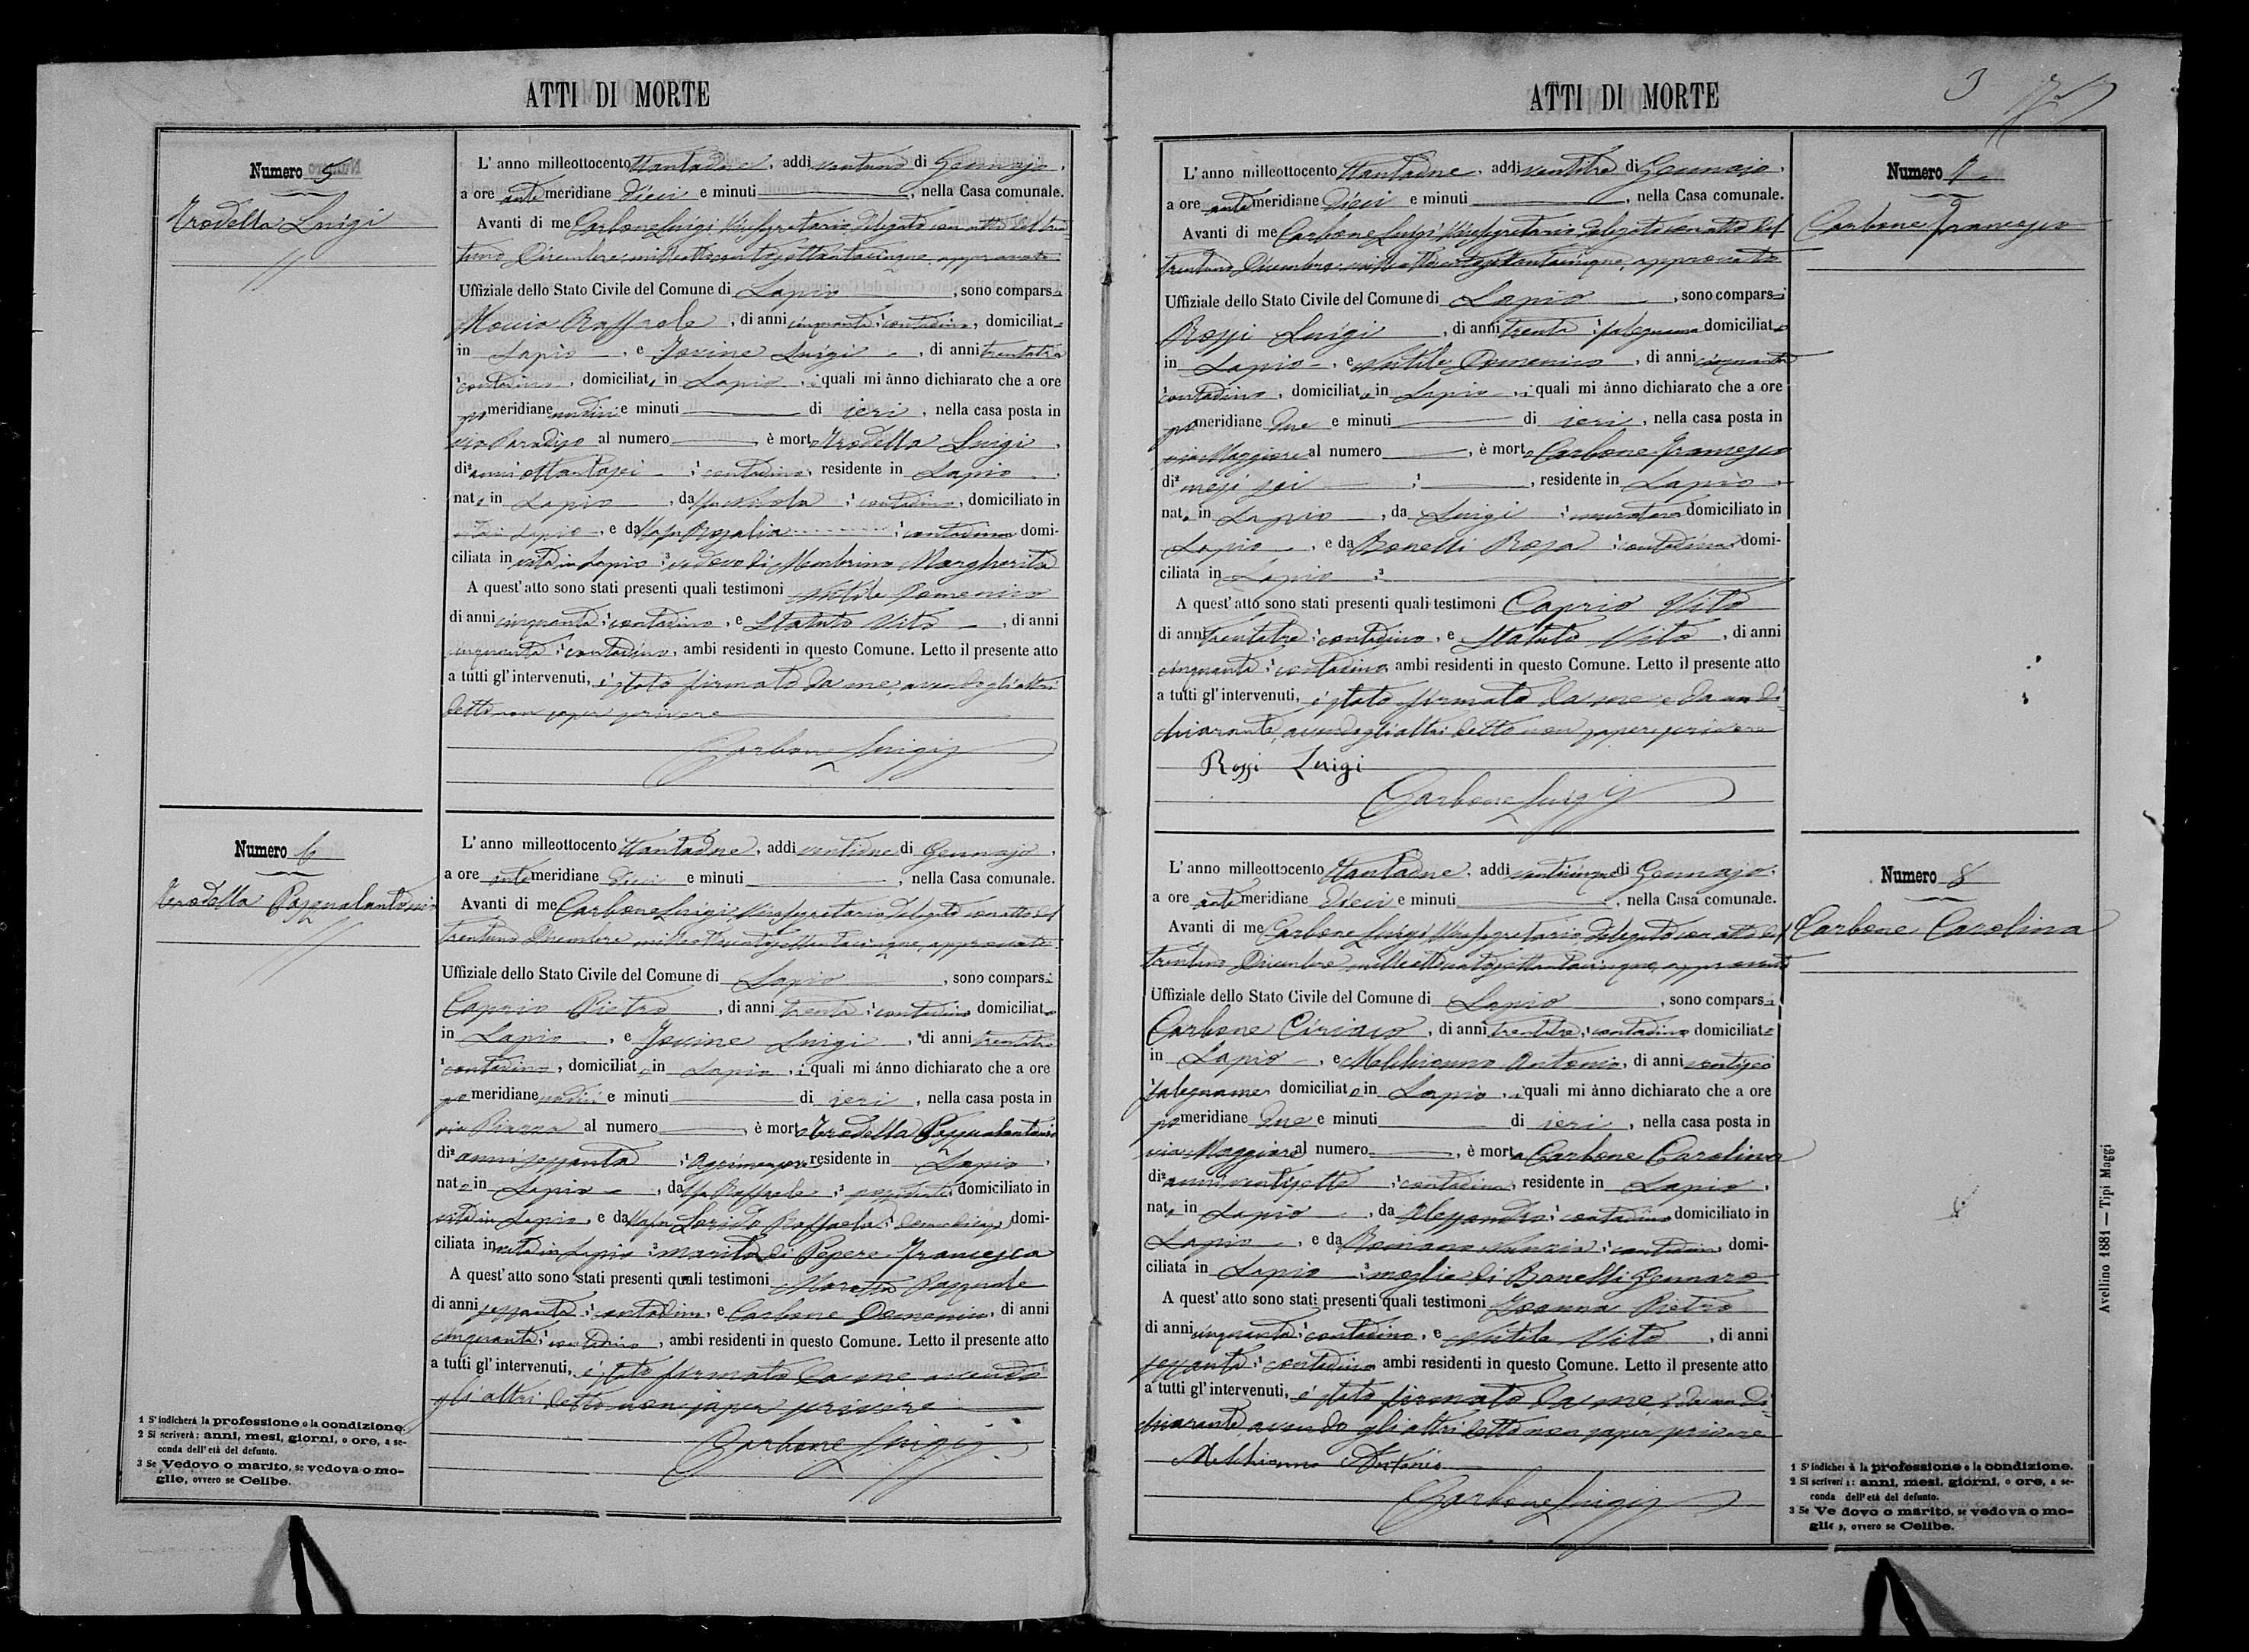 ATTI DI MORTE
Numero 5
Trodella Luigi
L' anno milleottocento ottantadue, addì ventuno di Gennajo,
a ore antemeridiane dieci e minuti, nella Casa comunale.
Avanti di me Carbone Luigi Vicesegretario delegato con atto del tren
tuno Dicembre milleottocentosettantacinque, approvato
Uffiziale dello Stato Civile del Comune di Lapio, sono comparsi
Raffaele, di anni cinquanta, contadino, domiciliato
in Lapio, e Jovine Luigi, di anni trentatre
contadino, domiciliato in Lapio, i quali mi ànno dichiarato che a ore
pomeridiane undici e minuti di ieri, nella casa posta in
via Paradiso al numero, è morto Trodella Luigi,
di anni ottantasei, contadino, residente in Lapio,
nato in Lapio, da fu Nicola, contadino, domiciliato in
Lapio, e da fu Rosalia, contadina domi-
ciliata in vita in Lapio, vedovo di Margherita
A quest' atto sono stati presenti quali testimoni Nutile Domenico
di anni cinquanta, contadino, e Statuto Vito, di anni
cinquanta, contadino, ambi residenti in questo Comune. Letto il presente atto
a tutti gl' intervenuti, è stato firmato da me, avendo gli altri
detto non saper scrivere
Carbone Luigi
Numero 6
Trodella Pasqualantonio
L' anno milleottocento ottantadue, addì ventidue di Gennajo,
a ore antemeridiane dieci e minuti, nella Casa comunale.
Avanti di me Carbone Luigi Vicesegretario delegato con atto del
trentuno Dicembre milleottocentosettantacinque, approvato
Uffiziale dello Stato Civile del Comune di Lapio, sono comparsi
Caprio Pietro, di anni trenta, contadino domiciliato
in Lapio, e Jovine Luigi, di anni trentatre
contadino, domiciliato in Lapio, i quali mi ànno dichiarato che a ore
pomeridiane undici e minuti di ieri, nella casa posta in
via Piazza al numero, è morto Trodella Pasqualantonio
di anni sessanta, Agrimensore residente in Lapio,
nato in Lapio, da fu Raffaele, domiciliato in
vita in Lapio, e da fu Raffaela, domi-
ciliata in vita in Lapio, marito di Pepere Francesca
A quest' atto sono stati presenti quali testimoni Pasquale
di anni sessanta, contadino, e Carbone Domenico, di anni
cinquanta, contadino, ambi residenti in questo Comune. Letto il presente atto
a tutti gl' intervenuti, è stato firmato da me avendo
gli altri detto non saper scrivere
Carbone Luigi
1 S' indicherà la professione o la condizione.
2 Si scriverà: anni, mesi, giorni, o ore, a se-
conda dell' età del defunto.
3 Se Vedovo o marito, se vedova o mo-
glie, ovvero se Celibe.
ATTI DI MORTE
3
Numero 7
Carbone Francesco
L' anno milleottocento ottantadue, addì ventitre di Gennajo,
a ore antemeridiane dieci e minuti, nella Casa comunale.
Avanti di me Carbone Luigi Vicesegretario delegato con atto del
trentuno Dicembre milleottocentosettantacinque, approvato
Uffiziale dello Stato Civile del Comune di Lapio, sono comparsi
Rossi Luigi, di anni trenta, falegname domiciliato
in Lapio, e Nutile Domenico, di anni cinquanta
contadino, domiciliato in Lapio, i quali mi ànno dichiarato che a ore
pomeridiane due e minuti di ieri, nella casa posta in
via Maggiore al numero, è morto Carbone Francesco
di mesi sei, residente in Lapio,
nato in Lapio, da Luigi, muratore domiciliato in
Lapio, e da Bonelli Rosa, contadina domi-
ciliata in Lapio
A quest' atto sono stati presenti quali testimoni Caprio Vito
di anni trentatre, contadino, e Statuto Vito, di anni
cinquanta, contadino, ambi residenti in questo Comune. Letto il presente atto
a tutti gl' intervenuti, è stato firmato da me e da un di
chiarante, avendo gli altri detto non saper scrivere
Rossi Luigi
Carbone Luigi
Numero 8
Carbone Carolina
L' anno milleottocento ottantadue, addì venticinque di Gennajo,
a ore antemeridiane dieci e minuti, nella Casa comunale.
Avanti di me Carbone Luigi Vicesegretario delegato con atto del
trentuno Dicembre milleottocentosettantacinque, approvato
Uffiziale dello Stato Civile del Comune di Lapio, sono comparsi
Carbone Ciriaco, di anni trentatre, contadino domiciliato
in Lapio, e Melchionno Antonio, di anni ventisei
falegname domiciliato in Lapio, i quali mi ànno dichiarato che a ore
pomeridiane due e minuti di ieri, nella casa posta in
via Maggiore al numero, è morta Carbone Carolina
di anni ventisette, contadina, residente in Lapio,
nata in Lapio, da Alessandro, contadino domiciliato in
Lapio, e da Romano Nunzia, contadina, domi-
ciliata in Lapio, moglie di Bonelli Gennaro
A quest' atto sono stati presenti quali testimoni Joanna Pietro
di anni cinquanta, contadino, e Nutile Vito, di anni
sessanta, contadino ambi residenti in questo Comune. Letto il presente atto
a tutti gl' intervenuti, è stato firmato da me e da un di
chiarante, avendo gli altri detto non saper scrivere
Melchionno Antonio
Carbone Luigi
1 S' indicherà la professione o la condizione.
2 Si scriverà: anni, mesi, giorni, o ore, a se-
conda dell' età del defunto.
3 Se Vedovo o marito, se vedova o mo-
glie, ovvero se Celibe.
Avellino 1881 — Tipi Maggi